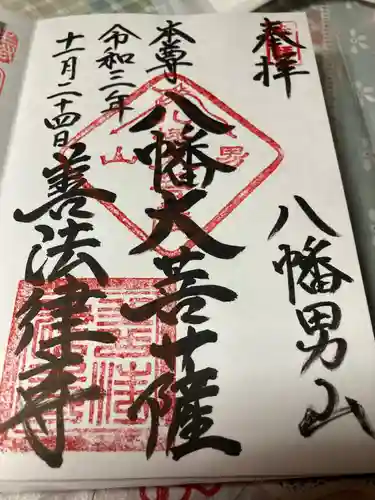 奉拝
八幡男山
本尊
八幡大菩薩
令和三年
十一月二十四日
善法律寺